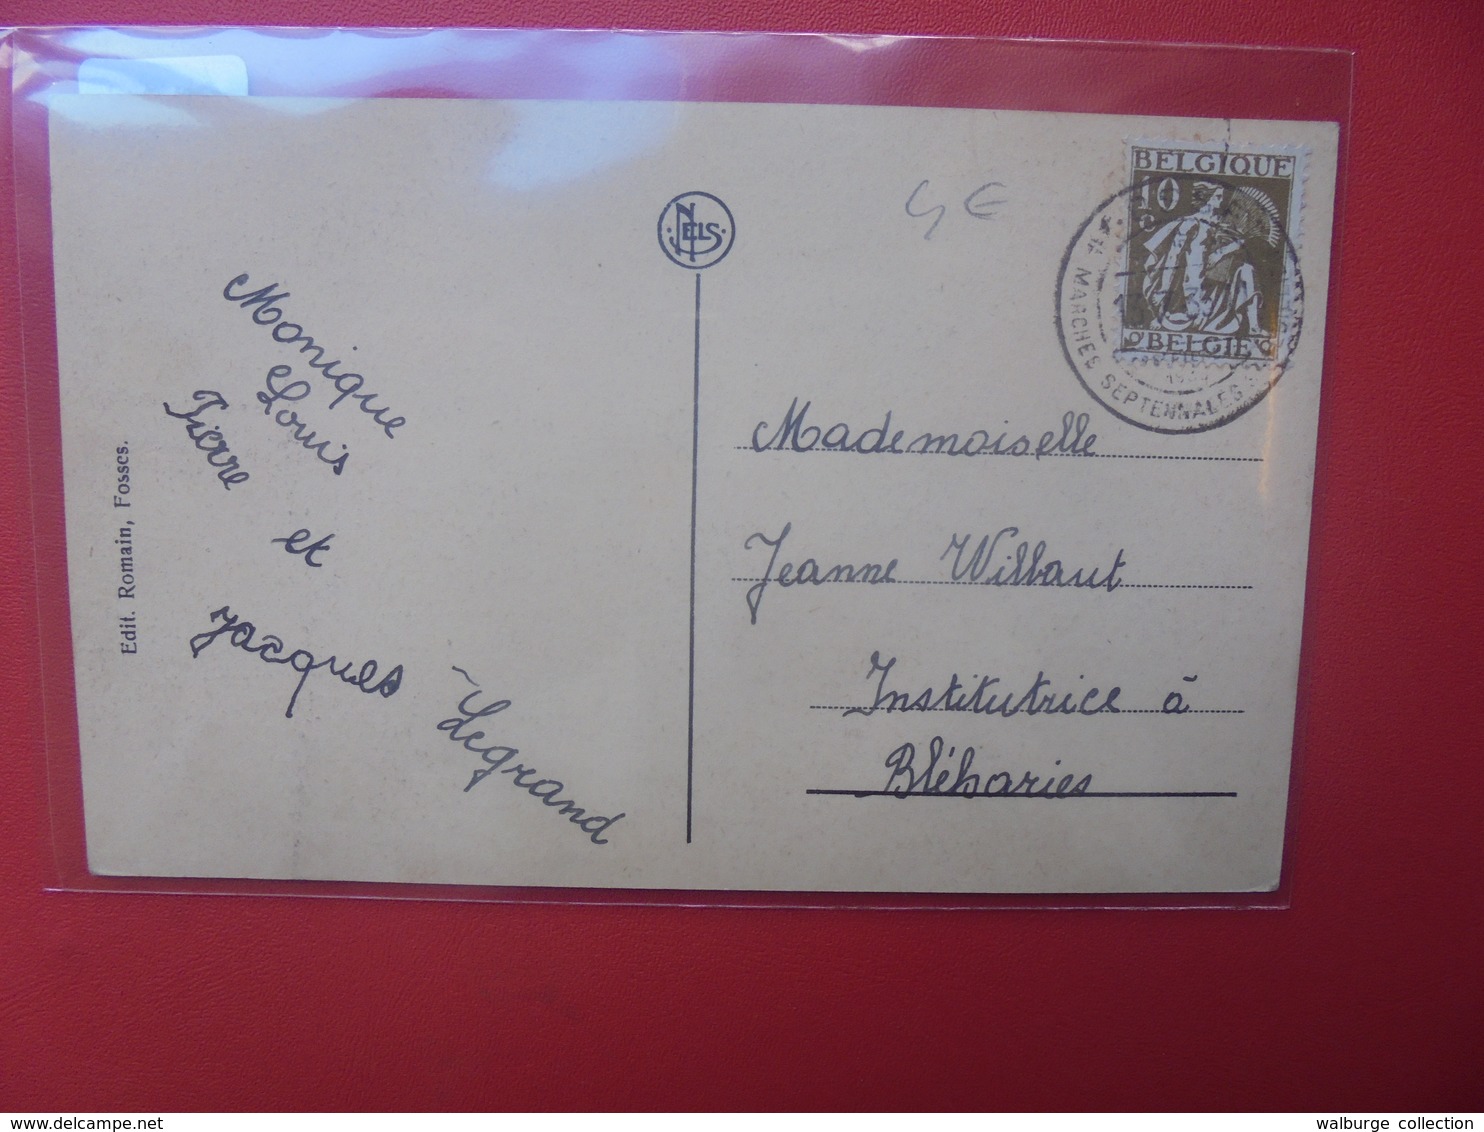 BELGIQUE
10
c
BELGIË
MARCHES SEPTENNALES
NELS
4 €
Monique
Louis
Pierre
et
Jacques Legrand
Edit. Romain, Fosses.
Mademoiselle
Jeanne Willaut
Institutrice à
Bléharies
delcampe.net
walburge collection